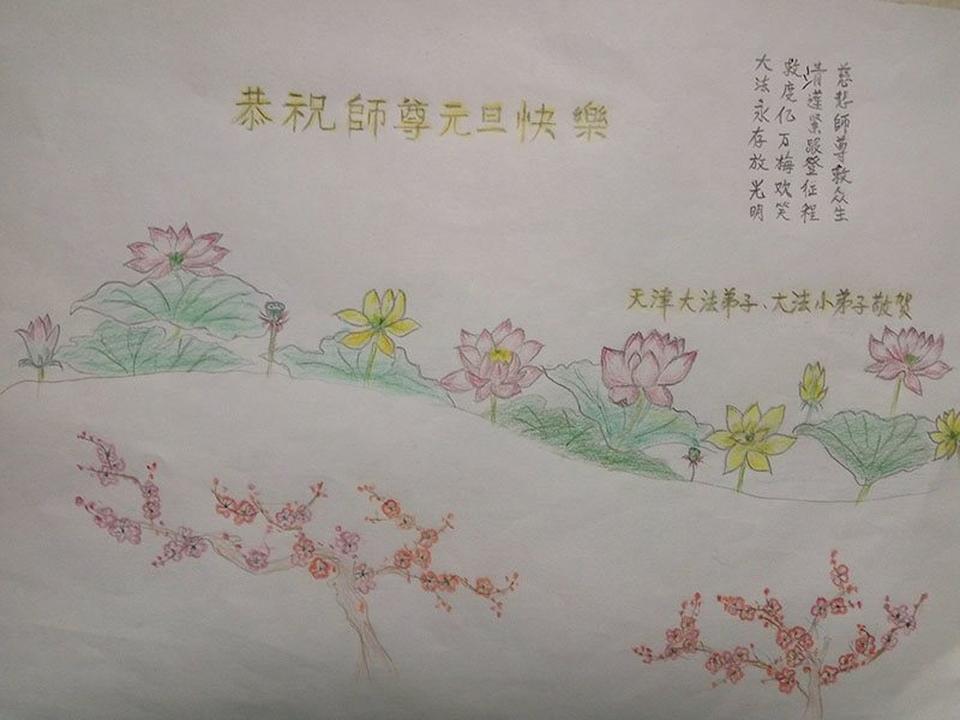 恭祝師尊元旦快樂
慈悲師尊救众生
青莲紧跟登征程
救度亿万梅欢笑
大法永存放光明
天津大法弟子、大法小弟子敬贺